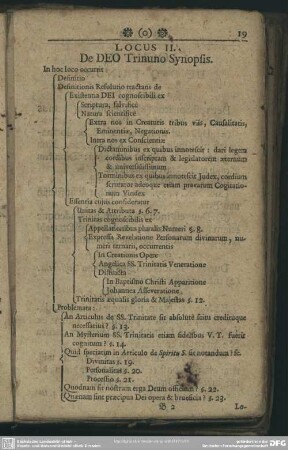 (o) 19
LOCUS II.
De DEO Trinuno Synopsis.
In hoc loco occurrit:
Definitio
Definitionis Resolutio tractans de
Existentia DEI cognoscibili ex
Scriptura, salvifice
Natura scientifice
Extra nos in Creaturis tribus viis, Causalitatis,
Eminentiæ, Negationis.
Intra nos ex Conscientiæ
Dictaminibus ex quibus innotescit: dari legem
cordibus inscriptam & legislatorem æternum
& universalissimum
Terminibus ex quibus innotescit Judex, cordium
scrutator adeoque etiam pravarum Cogitatio-
num Vindex
Essentia cujus considerantur
Unitas & Attributa §. 6. 7.
Trinitas cognoscibilis ex
Appellationibus pluralis Numeri §. 8.
Expressa Revelatione Personarum divinarum, nu-
meri ternarii, occurrentis
In Creationis Opere
Angelica SS. Trinitatis Veneratione
Distincta
In Baptismo Christi Apparitione
Johannica Asseveratione
Trinitatis æqualis gloria & Majestas §. 12.
Problemata:
An Articulus de SS. Trinitate sit absolute scitu credituque
necessarius? §. 13.
An Mysterium SS. Trinitatis etiam fidelibus V. T. fuerit
cognitum? §. 14.
Quid speciatim in Articulo de Spiritu S. sit notandum? sc.
Divinitas §. 19.
Personalitas §. 20.
Processus §. 21.
Quodnam sit nostrum erga Deum officium? §. 22.
Quænam sint præcipua Dei opera & beneficia? §. 23.
B 2 Lo-